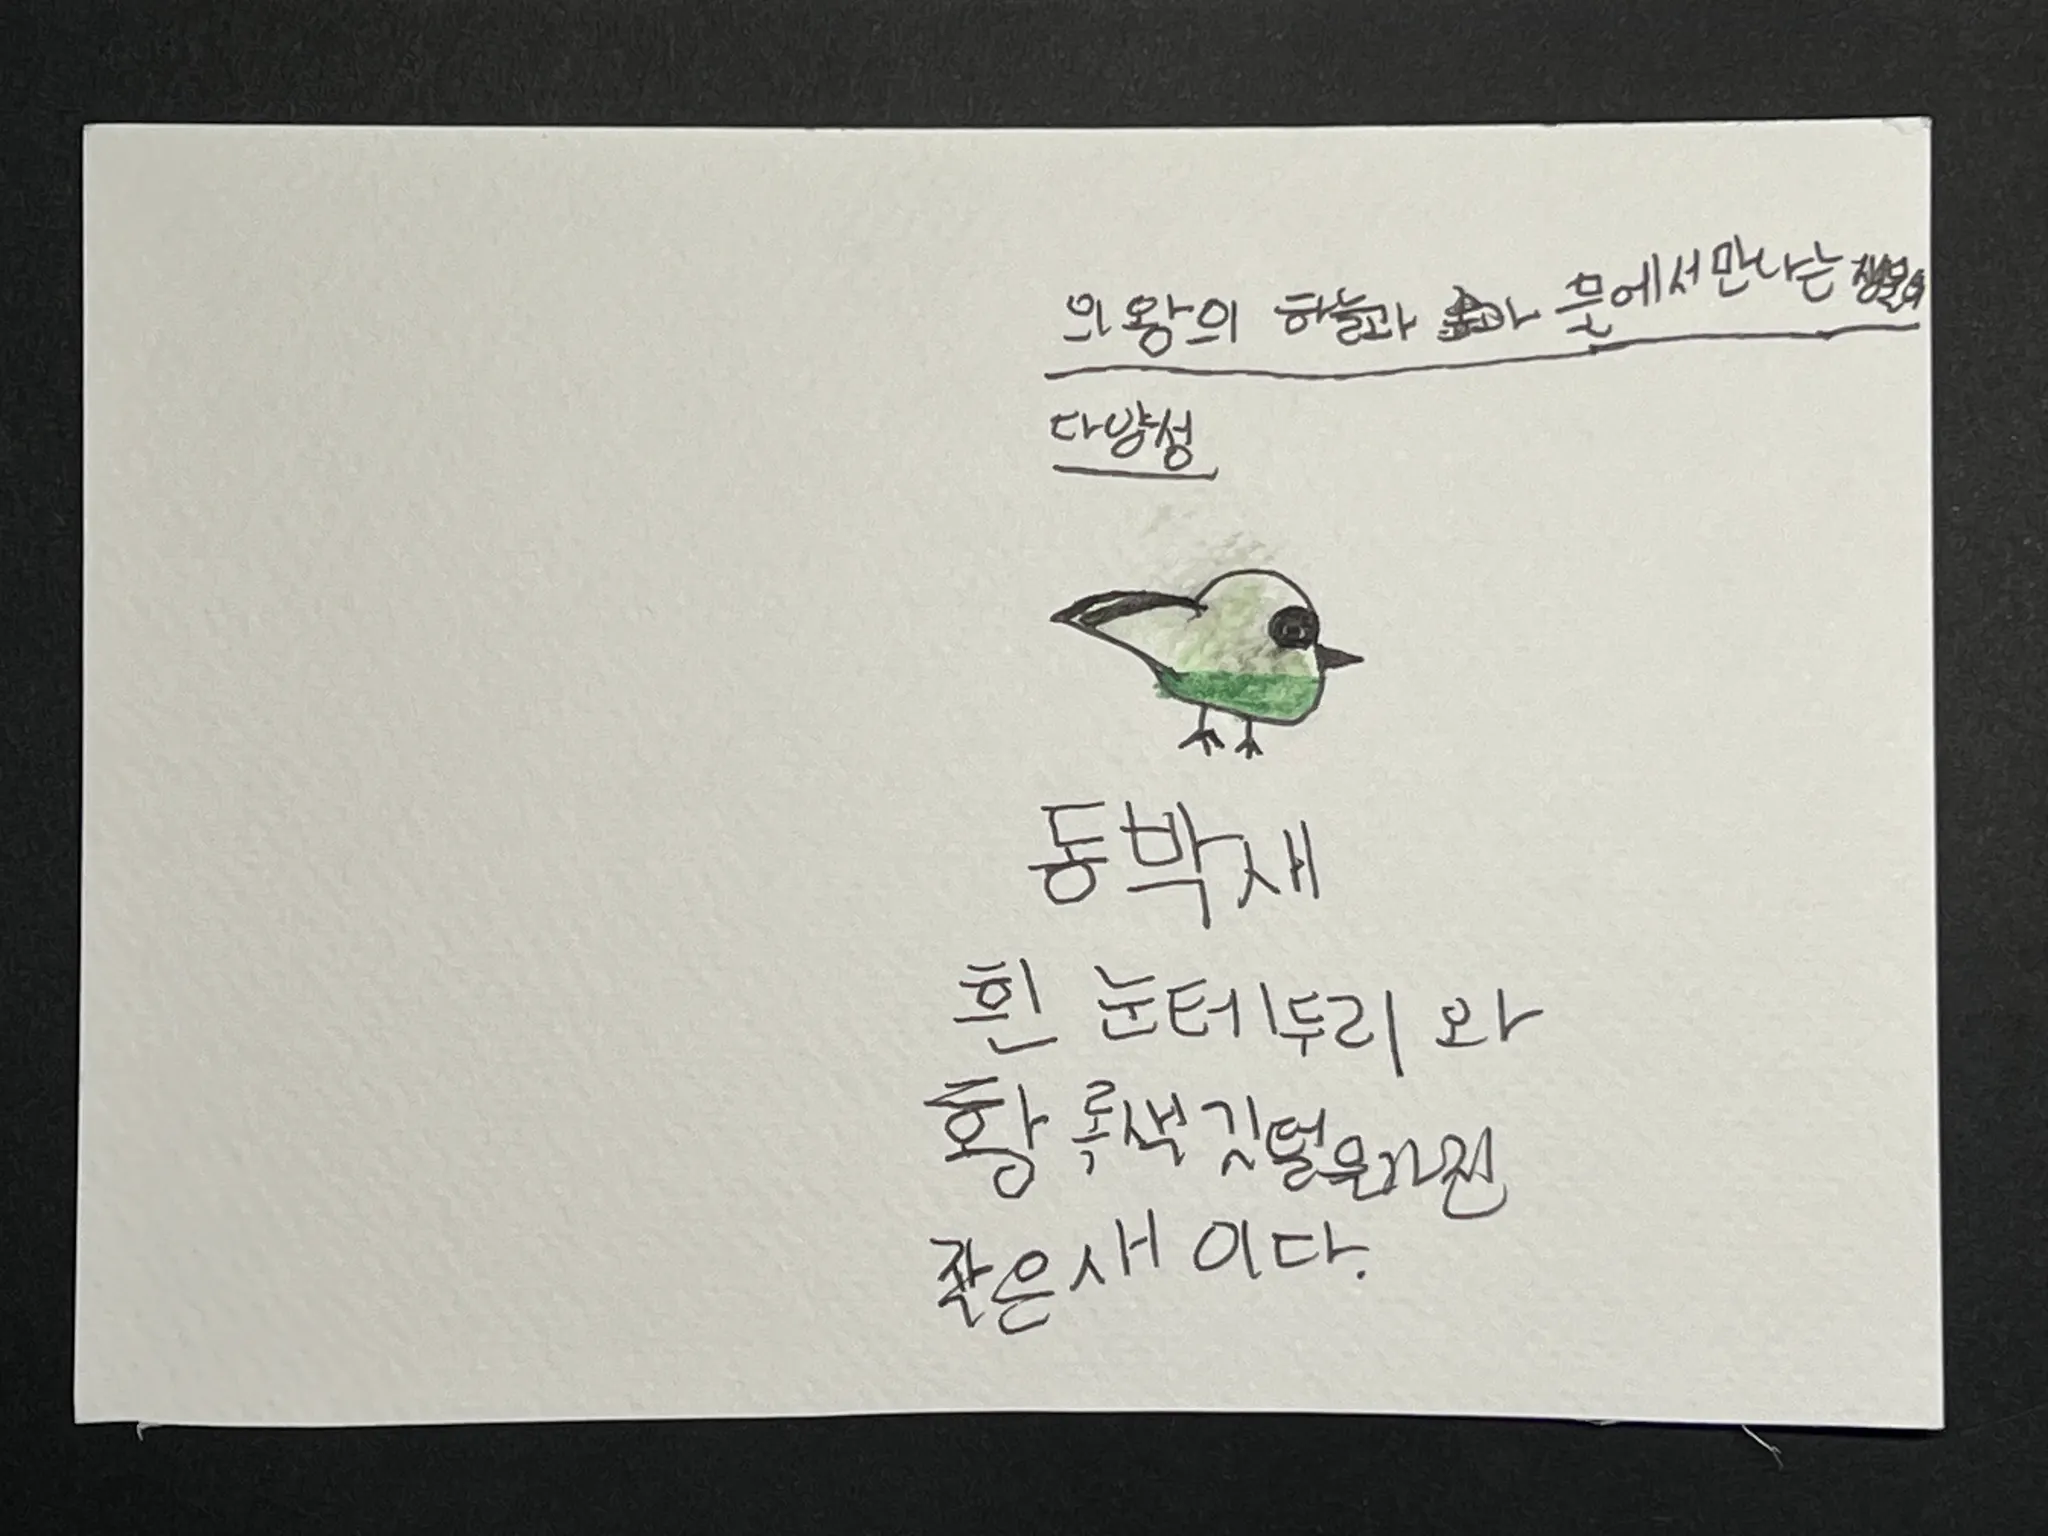 의왕의 하늘과 문에서만나는 생물의
다양성
동박새
흰 눈테두리 와
황록색 깃털을가진
작은새 이다.